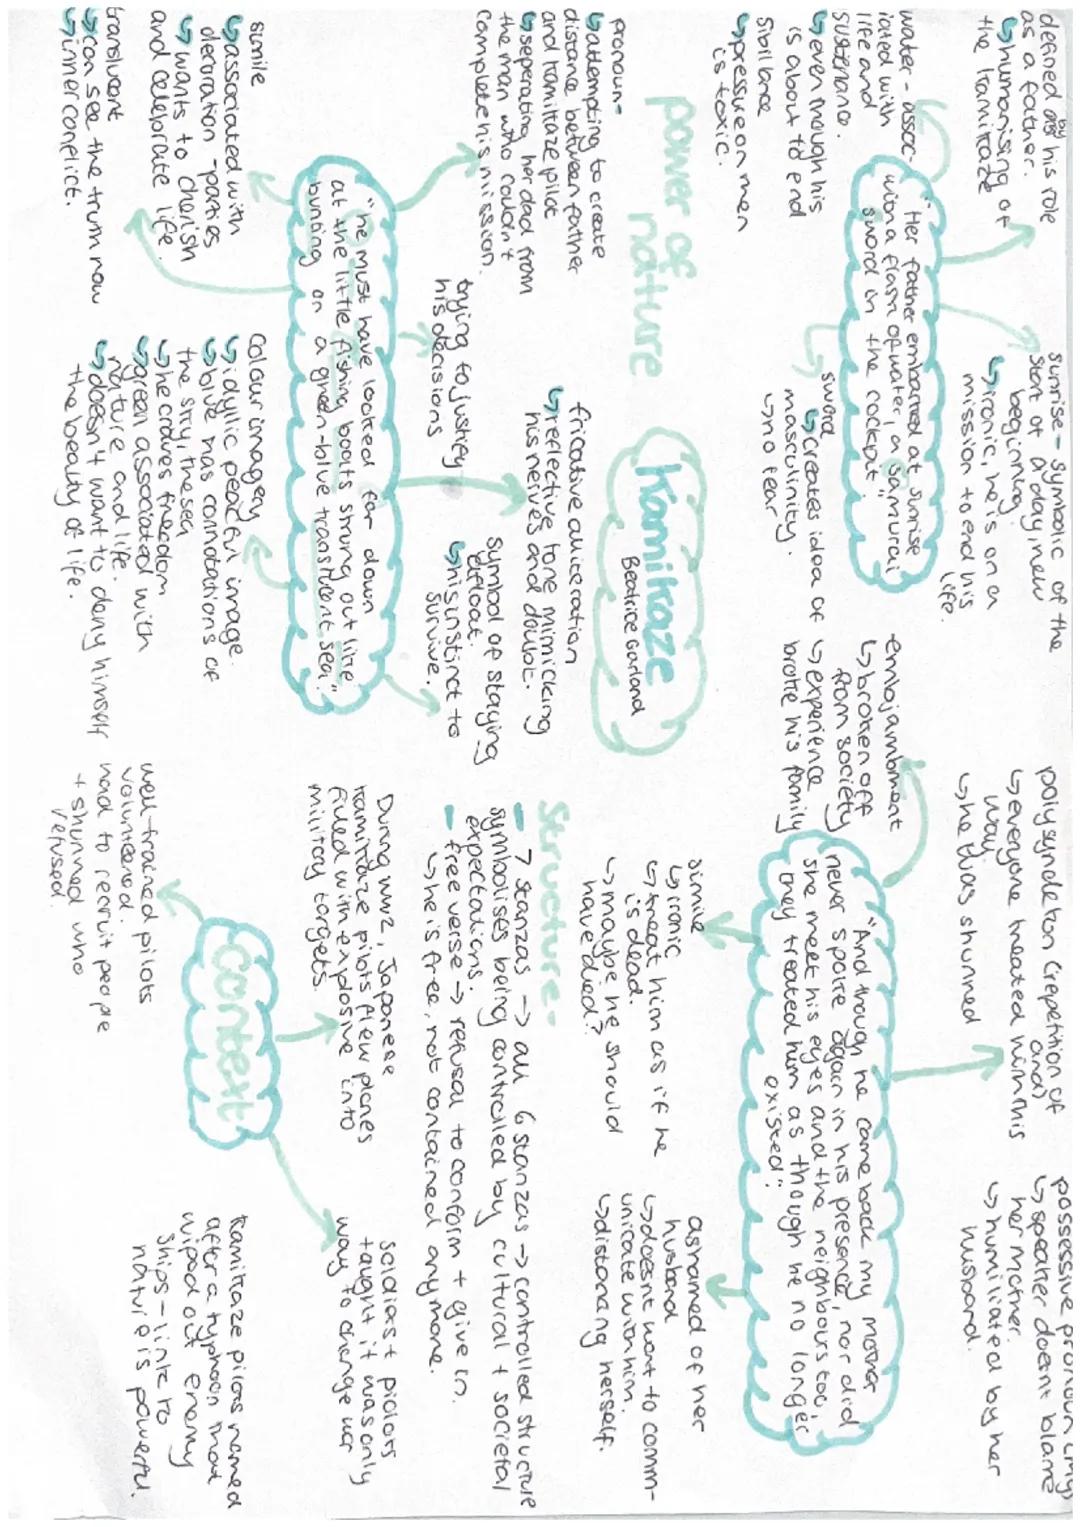 defined by his role
as a father.
↳ humanising of
the kamikaze
sunrise - symbolic of the
start of a day, new
beginning
↳ ironic, he is on a
mission to end his
life.
water - assoc-
iated with
life and
sustenance.
↳ even though his
is about to end
sibilance
↳ pressure on men
is toxic.
"Her father embarked at sunrise
with a flask of water, a samurai
sword in the cockpit."
sword
↳ creates idea of
masculinity.
↳ no fear
polysyndeton (repetition of
and)
↳ everyone treated him this
way
↳ he was shunned
possessive pronoun (my)
↳ speaker doesnt blame
her mother.
↳ humiliated by her
husband.
enjambment
↳ broken off
from society
↳ experience
broke his family
"And though he came back my mother
never spoke again in his presence, nor did
she meet his eyes and the neighbours too,
they treated him as though he no longer
existed."
simile
↳ ironic
↳ treat him as if he
is dead.
↳ maybe he should
have died?
ashamed of her
husband
↳ doesnt want to comm-
unicate with him.
↳ distancing herself.
power of
nature
Kamikaze
Beatrice Garland
pronoun -
↳ attempting to create
distance between father
and kamikaze pilot
↳ seperating her dad from
the man who couldn't
complete his mission.
trying to justify
his decisions
fricative alliteration
↳ reflective tone mimicking
his nerves and doubt.
symbol of staying
afloat.
↳ his instinct to
survive.
"he must have looked far down
at the little fishing boats strung out like
bunting on a green-blue translucent sea."
simile
↳ associated with
decoration - parties
↳ wants to cherish
and celebrate life.
translucent
↳ can see the truth now
↳ inner conflict.
Colour imagery
↳ idyllic peaceful image.
↳ blue has connotations of
the sky, the sea
↳ he craves freedom
↳ green associated with
nature and life.
↳ doesn't want to deny himself
the beauty of life.
Structure -
- 7 stanzas → all 6 stanzas → controlled structure
symbolises being controlled by cultural + societal
expectations.
- free verse → refusal to conform + give in.
↳ he is free, not contained anymore.
Context
During WW2, Japanese
kamikaze pilots flew planes
filled with explosive into
military targets.
soldiers + pilots
taught it was only
way to change war
well-trained pilots
volunteered.
had to recruit people
+ shunned who
refused.
Kamikaze pilots named
after a typhoon that
wiped out enemy
ships - links to
nature is powerful.